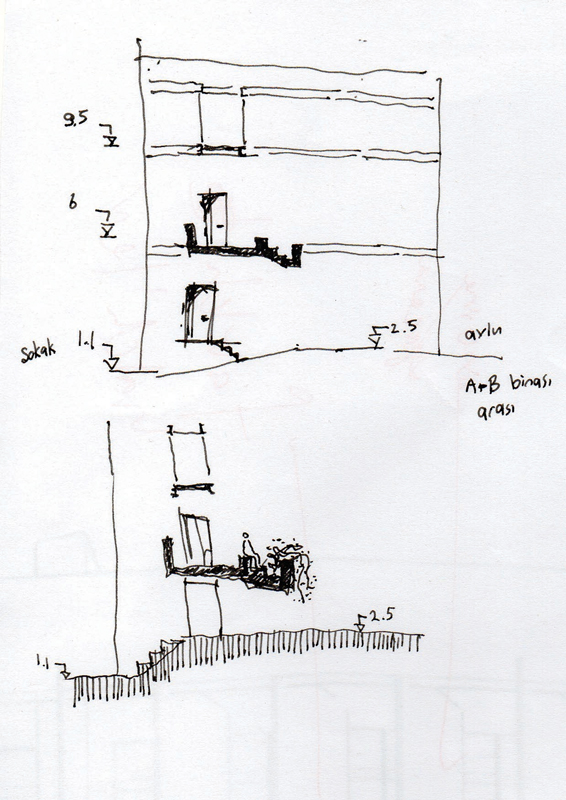 9.5
6
1.1
2.5
Sokak
avlu
A+B binası
arası
2.5
1.1